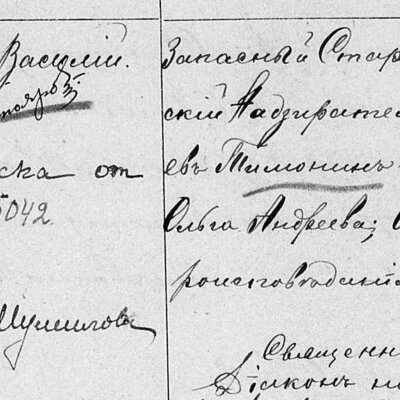 Василій.
ска от
5042
Шумилова
Запасный Стар
скій Надзирател
евъ Тимонинъ
Ольга Андреева;
Священн
Діаконъ